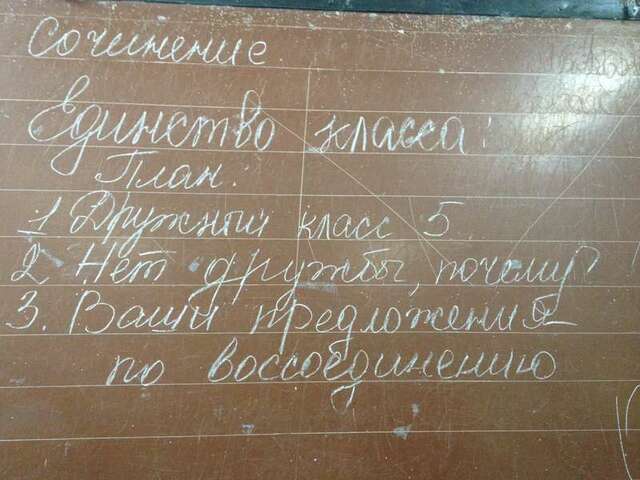 Сочинение
Единство класса.
План:
1 Дружный класс 5
2 Нет дружбы, почему?
3. Ваши предложения
по воссоединению